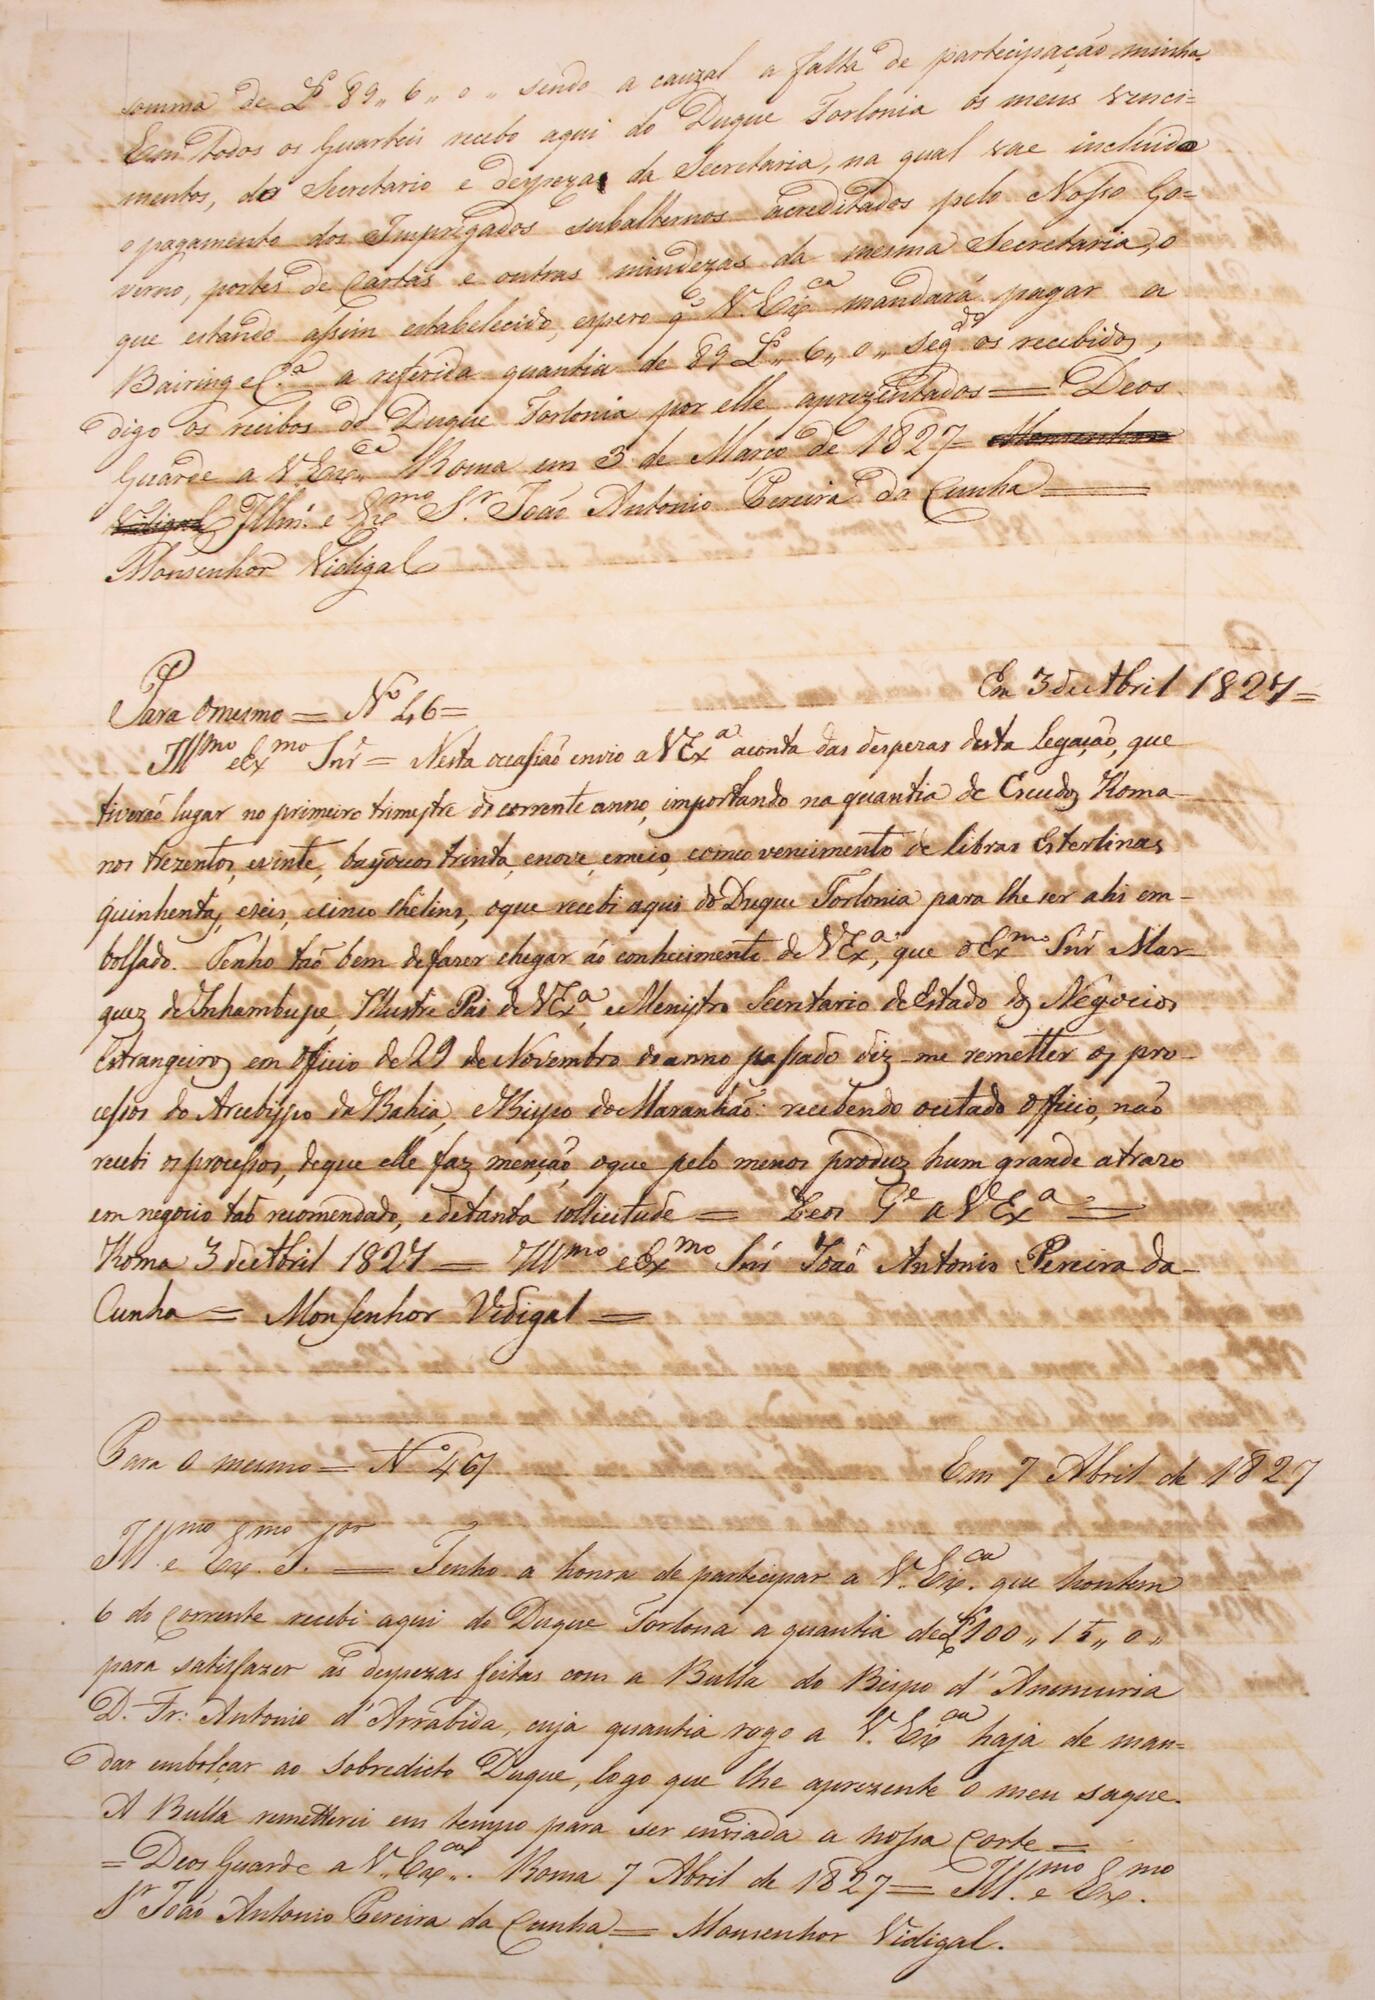 somma de £ 89,, 6,, 0,, sendo a cauzal a falta de participação minha.
Em todos os Quarteis recebo aqui do Duque Torlonia os meus venci=
mentos, do Secretario e despezas da Secretaria, na qual vae incluido
o pagamento dos Impregados subalternos acreditados pelo Nosso Go=
verno, portes de Cartas e outras miudezas da mesma Secretaria, o
que estando assim estabelecido, espero q̃ V. Exca mandará pagar a
Bairing e C.a a referida quantia de 89 £,, 6,, 0,, segdo os recibidos,
digo os recibos do Duque Torlonia por elle aprezentados = Deos
Guarde a V. Exca Roma em 3 de Março de 1827 = Monsenhor
Vidigal Illm. e Exmo Sr. João Antonio Pereira da Cunha =
Monsenhor Vidigal
Para o mesmo = No 46 = Em 3 de Abril 1827 =
Illmo e Exmo Snr = Nesta occasião envio a V Exa a conta das despezas desta Legação, que
tiverão lugar no primeiro trimestre do corrente anno, importando na quantia de Escudos Roma-
nos trezentos, e vinte, bayocos trinta, e nove, e meio, com o vencimento de libras Esterlinas
quinhentas, e seis, e cinco shelins, o que recebi aqui do Duque Torlonia para lhe ser ahi em-
bolsado. Tenho taõ bem de fazer chegar áo conhecimento de V Exa, que o Exmo Snr Mar-
quez de Inhambupe, Illustre Pai de V Exa, e Menistro Secretario de Estado dos Negocios
Estrangeiros em officio de 29 de Novembro do anno passado diz-me remetter os pro-
cessos do Arcebispo da Bahia, e Bispo do Maranhão: recebendo o citado officio, não
recebi os processos, de que elle faz menção, o que pelo menos produz hum grande atrazo
em negocio taõ recomendado, e de tanta sollicitude = Deos Ge a V Exa =
Roma 3 de Abril 1827 = Illmo e Exmo Snr João Antonio Pereira da
Cunha = Monsenhor Vidigal =
Para o mesmo = No 47 Em 7 Abril de 1827
Illmo e Exmo Sor = Tenho a honra de participar a V. Exca que hontem
6 do corrente recebi aqui do Duque Torlona a quantia de £100,, 15,, 0,,
para satisfazer ás despezas feitas com a Bulla do Bispo d'Anemuria
D. Fr: Antonio d'Arrabida, cuja quantia rogo a V. Exca haja de man=
dar embolçar ao sobredicto Duque, logo que lhe aprezente o meu saque.
A Bulla remetterei em tempo para ser enviada a nossa Corte =
= Deos Guarde a V. Exca. Roma 7 Abril de 1827 = Illmo e Exmo
Sr João Antonio Pereira da Cunha = Monsenhor Vidigal.